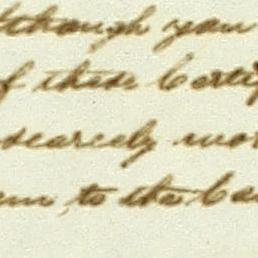 although you
of these Certif
scarcely wor
em, to the Ca